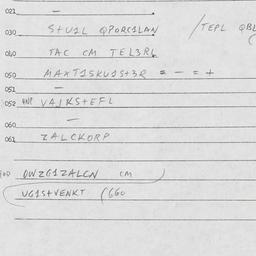 021 —
030 S+U1L QPORC1LAN /TEPL QBL
040 TAC CM TEL3RL
050 MAXT1SKU1S+3R = - = +
051 —
052 HNP VAJKS+EFL
060 —
061 ZALCKORP
QWZG1ZALCN CM
UG1S+VENKT (660